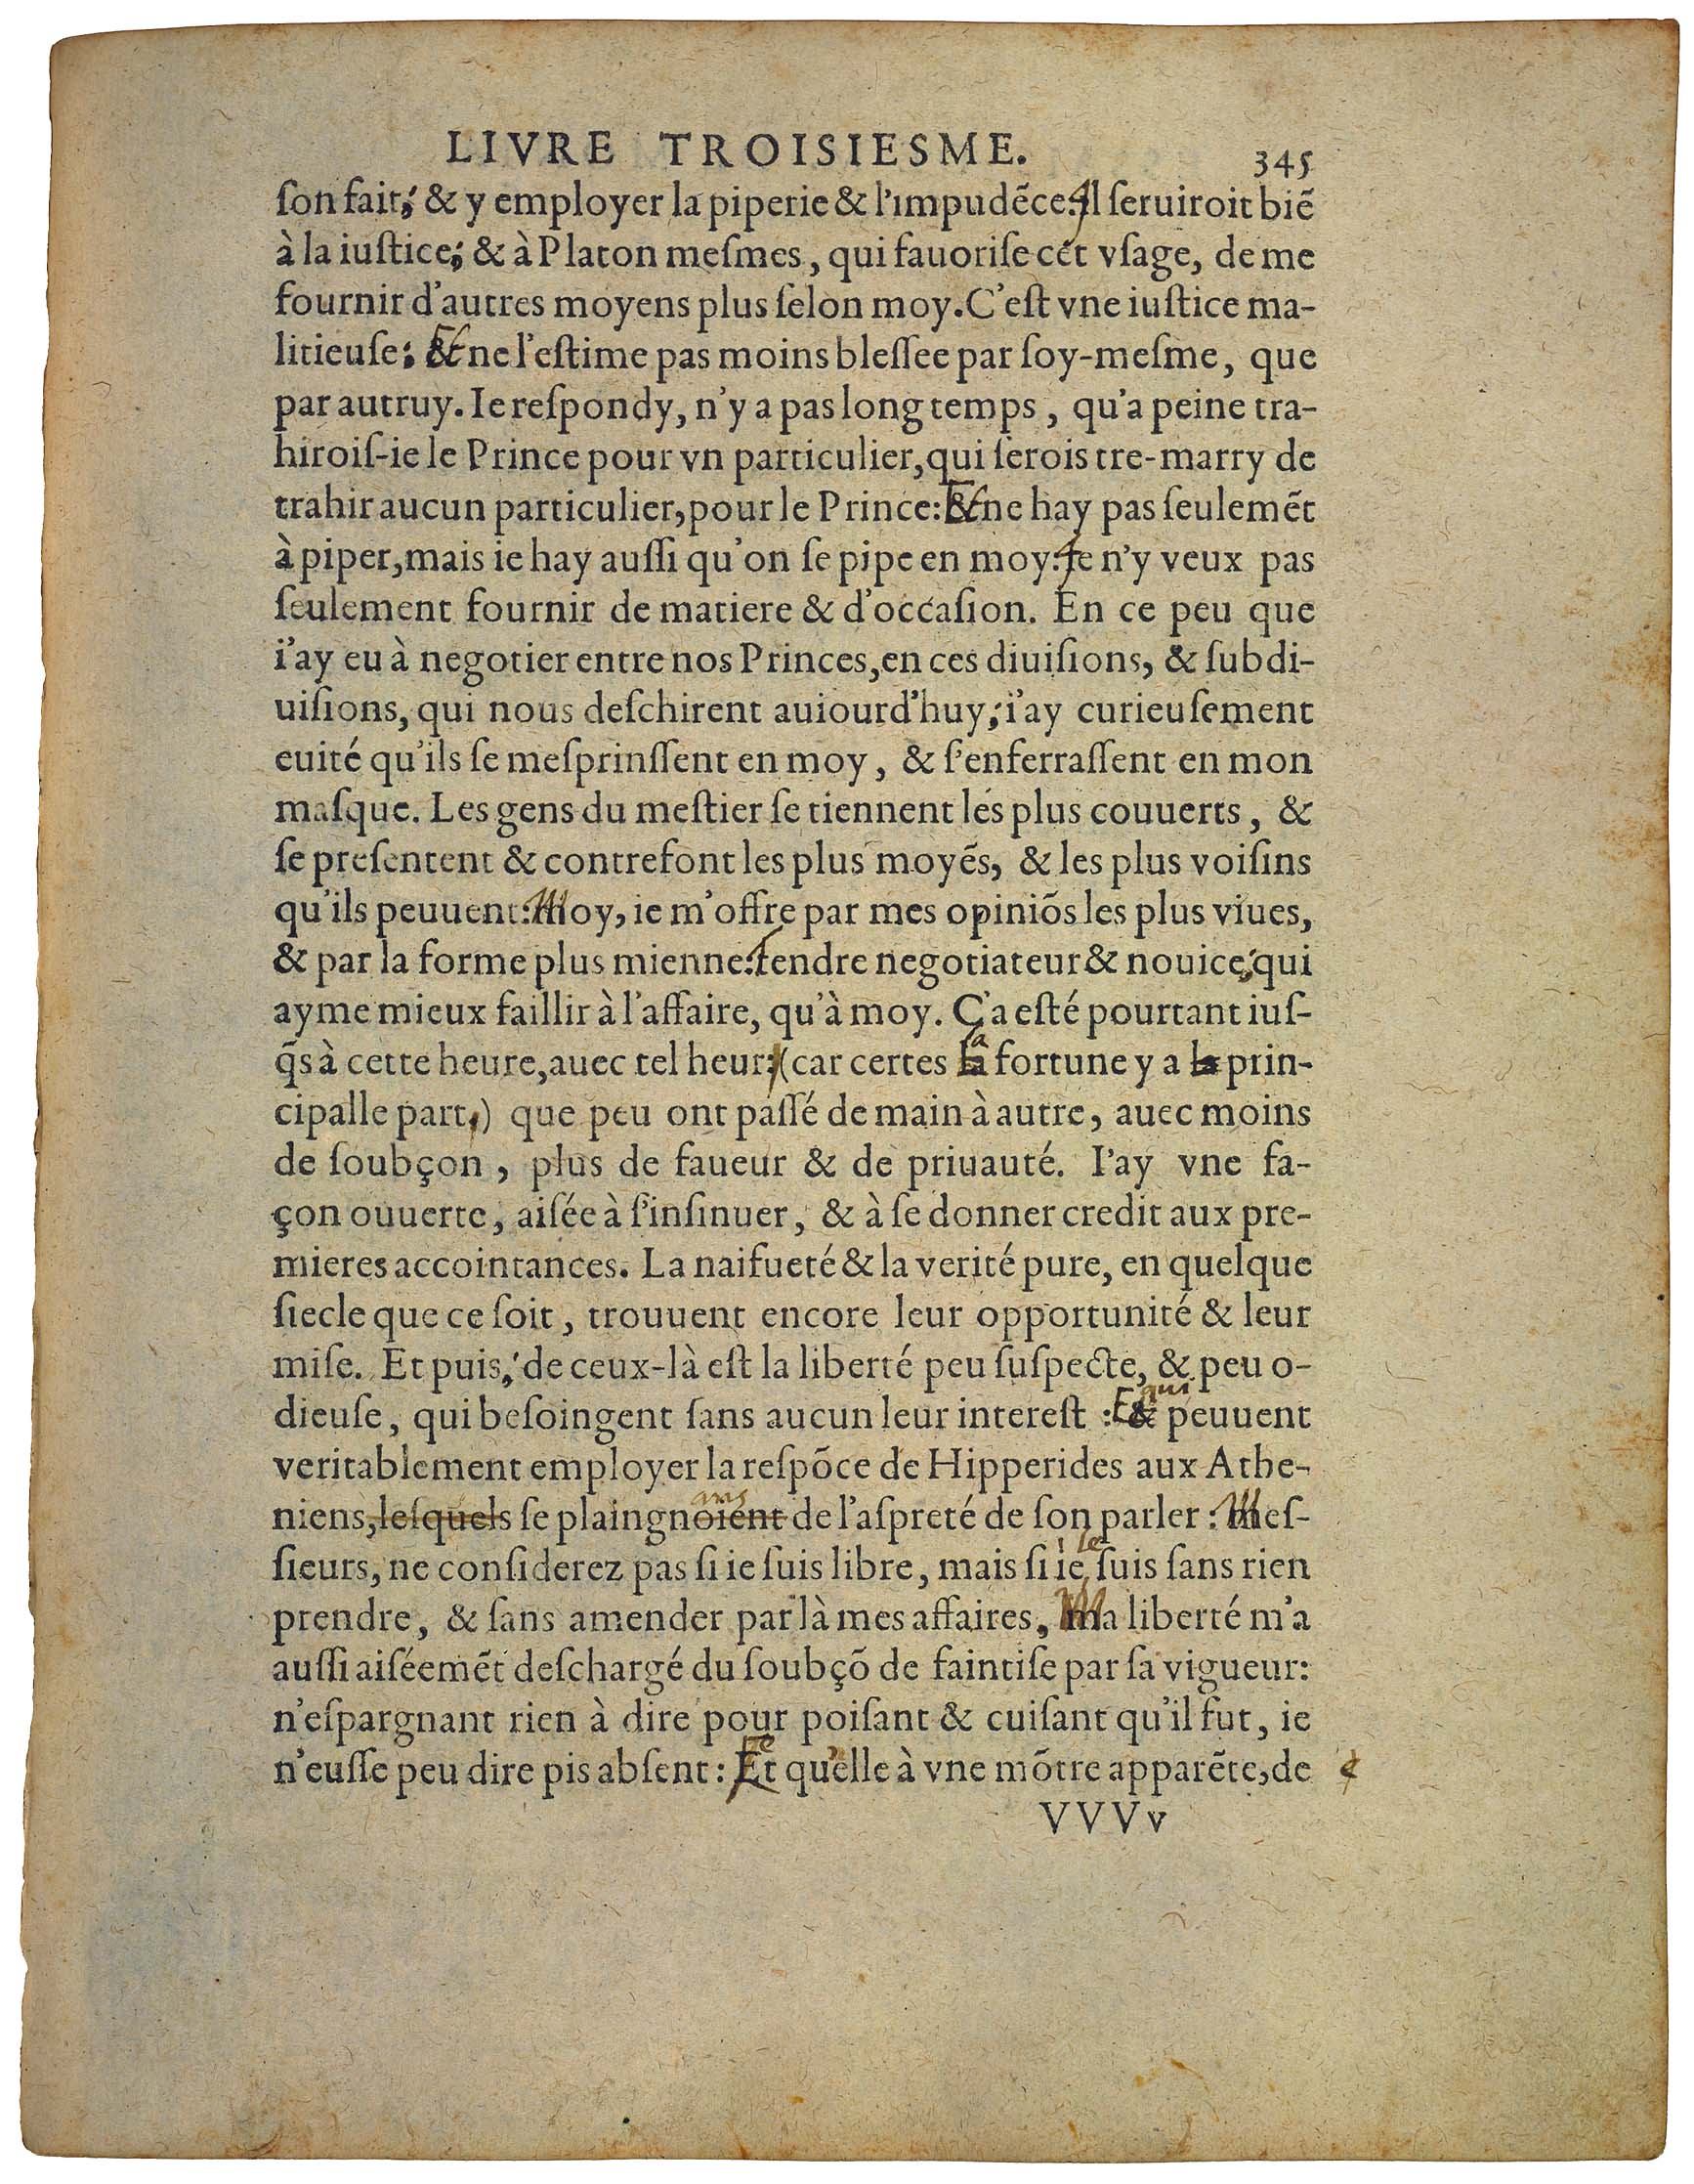 LIVRE TROISIESME.
345
ſon fait; & y employer la piperie & l'impudẽce. Il ſeruiroit biẽ
à la iuſtice; & à Platon meſmes, qui fauoriſe cet vſage, de me
fournir d'autres moyens plus ſelon moy. C'eſt vne iuſtice ma-
litieuſe; Et ne l'eſtime pas moins bleſſee par ſoy-meſme, que
par autruy. Ie reſpondy, n'y a pas long temps, qu'a peine tra-
hiroiſ-ie le Prince pour vn particulier, qui ſerois tre-marry de
trahir aucun particulier, pour le Prince: Et ne hay pas ſeulemẽt
à piper, mais ie hay auſſi qu'on ſe pipe en moy. Je n'y veux pas
ſeulement fournir de matiere & d'occaſion. En ce peu que
i'ay eu à negotier entre nos Princes, en ces diuiſions, & ſubdi-
uiſions, qui nous deſchirent auiourd'huy; i'ay curieuſement
euité qu'ils ſe meſprinſſent en moy, & ſ'enferraſſent en mon
maſque. Les gens du meſtier ſe tiennent les plus couuerts, &
ſe preſentent & contrefont les plus moyẽs, & les plus voiſins
qu'ils peuuent: Moy, ie m'offre par mes opiniõs les plus viues,
& par la forme plus mienne: Tendre negotiateur & nouice; qui
ayme mieux faillir à l'affaire, qu'à moy. Ç'a eſté pourtant iuſ-
q̃s à cette heure, auec tel heur, (car certes la fortune y a la prin-
cipalle part,) que peu ont paſſé de main à autre, auec moins
de ſoubçon, plus de faueur & de priuauté. I'ay vne fa-
çon ouuerte, aiſée à ſ'inſinuer, & à ſe donner credit aux pre-
mieres accointances. La naifueté & la verité pure, en quelque
ſiecle que ce ſoit, trouuent encore leur opportunité & leur
miſe. Et puis; de ceux-là eſt la liberté peu ſuſpecte, & peu o-
qui
dieuſe, qui beſoingent ſans aucun leur intereſt : Et peuuent
veritablement employer la reſpõce de Hipperides aux Athe-
ans
niens, leſquels ſe plaingnoient de l'aſpreté de ſon parler : Meſ-
le
ſieurs, ne conſiderez pas ſi ie ſuis libre, mais ſi ie ſuis ſans rien
prendre, & ſans amender par là mes affaires. Ma liberté m'a
auſſi aiſéemẽt deſchargé du ſoubçõ de faintiſe par ſa vigueur:
n'eſpargnant rien à dire pour poiſant & cuiſant qu'il fut, ie
n'euſſe peu dire pis abſent: Et qu'elle à vne mõtre apparẽte, de
VVVv